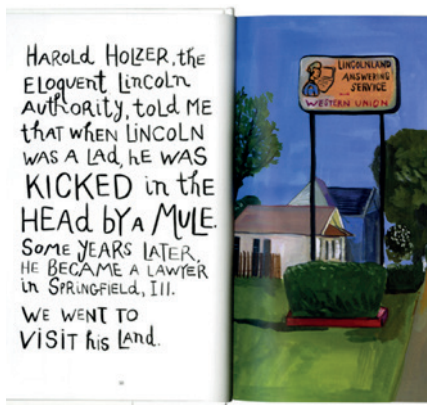 HAROLD HOLZER, the
ELOQUENT LINCOLN
AUTHORITY, tOLD ME
that WHEN LINCOLN
WAS A LAD, hE WAS
KICKED in the
HEAD by A MULE.
SOME YEARS LATER,
HE BECAME A LAWYER
in SPRINGFIELD, Ill.
WE WENT TO
VISIT his LAnd.
LINCOLNLAND
ANSWERING
SERVICE
WESTERN UNION